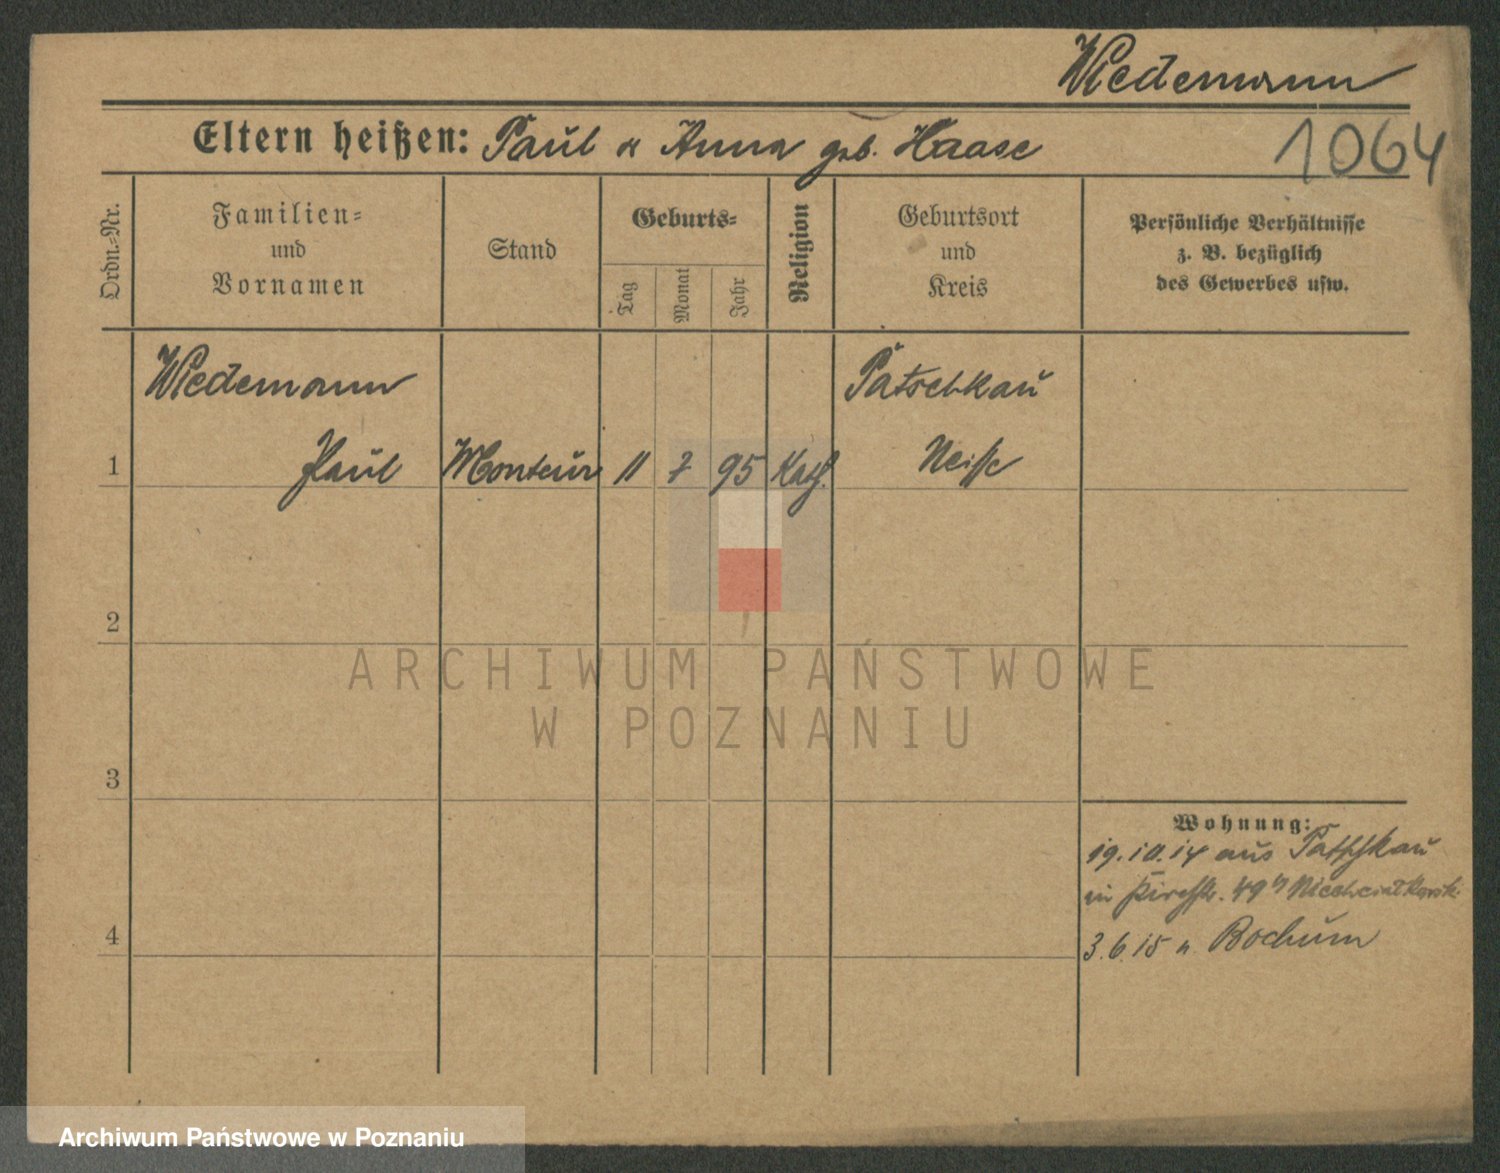 Wiedemann
Eltern heißen: Paul u Anna geb. Haase
1064
Ordn.=Nr.
Familien=
und
Vornamen
Stand
Geburts=
Tag
Monat
Jahr
Religion
Geburtsort
und
Kreis
Persönliche Verhältnisse
z. B. bezüglich
des Gewerbes usw.
Wiedemann
Patschkau
1 Paul Monteur 11 7 95 Kath. Neisse
2
ARCHIWUM PAŃSTWOWE
W POZNANIU
3
Wohnung:
19.10.14 aus Patschkau
in Kirchstr. 49
4
3.6.15 n. Bochum
Archiwum Państwowe w Poznaniu